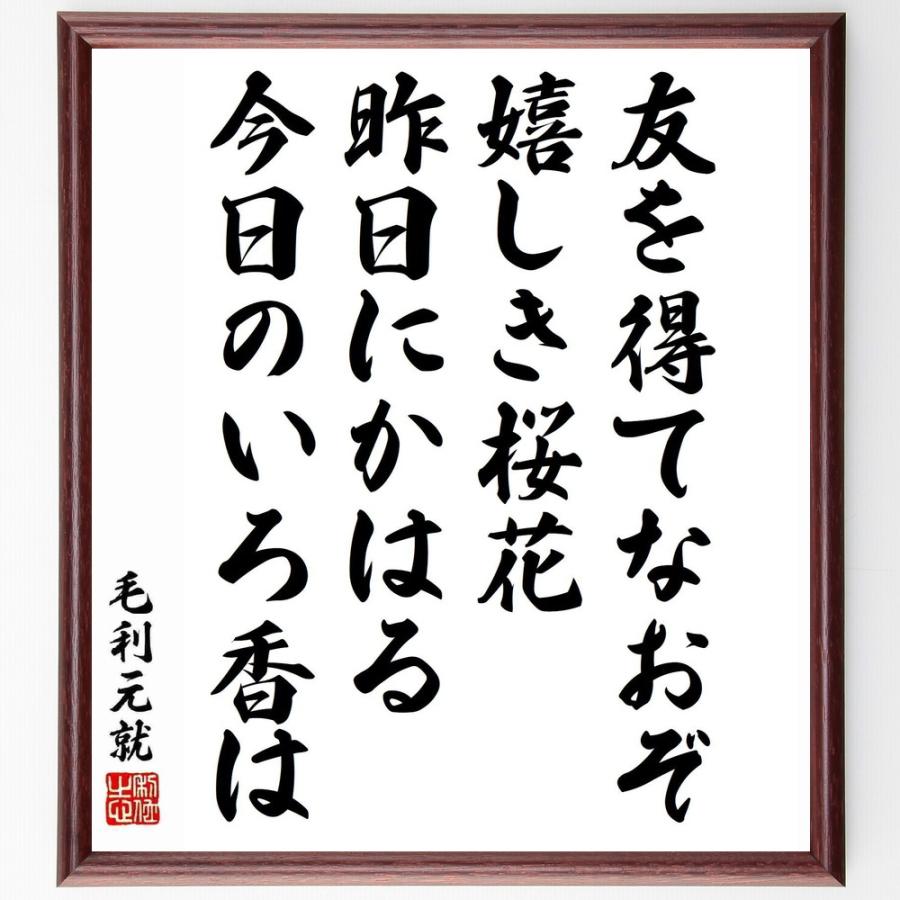 友を得てなおぞ
嬉しき桜花
昨日にかはる
今日のいろ香は
毛利元就